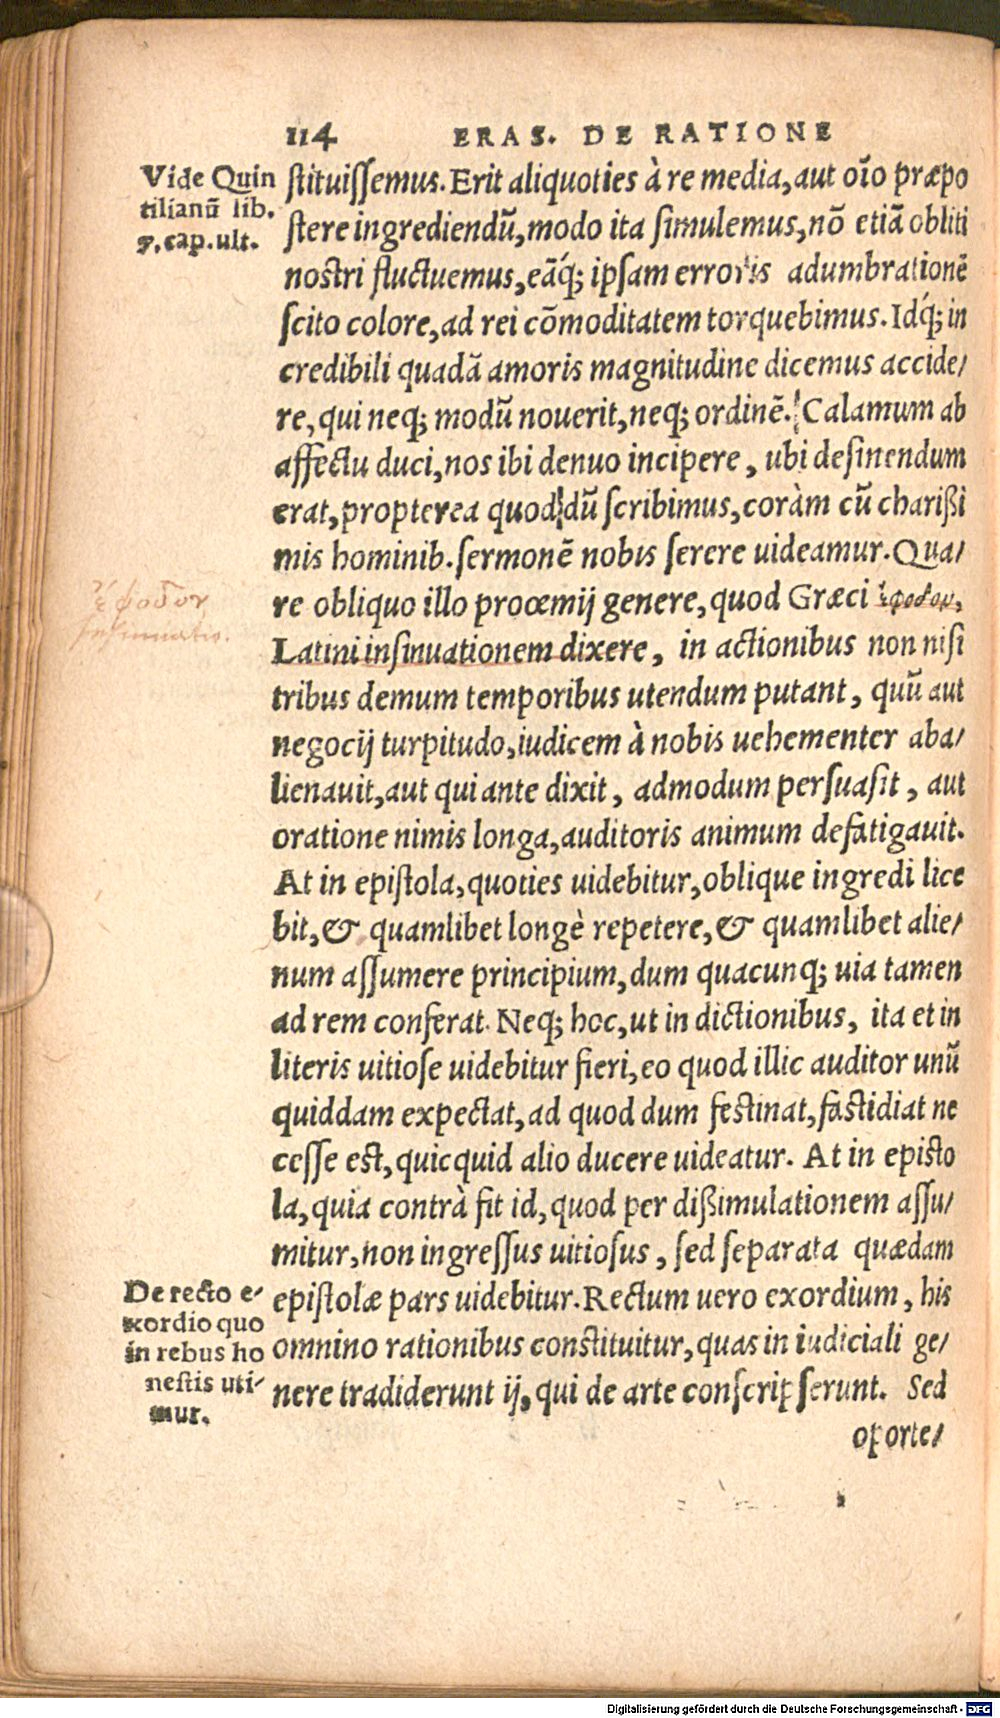 114 ERAS. DE RATIONE
Vide Quin
tilianũ lib.
9. cap. ult.
stituissemus. Erit aliquoties à re media, aut oĩo præpo
stere ingrediendũ, modo ita simulemus, nõ etiã obliti
nostri fluctuemus, eãq́; ipsam erroris adumbrationẽ
scito colore, ad rei cõmoditatem torquebimus. Idq́; in
credibili quadã amoris magnitudine dicemus accide/
re, qui neq; modũ nouerit, neq; ordinẽ. Calamum ab
affectu duci, nos ibi denuo incipere, ubi desinendum
erat, propterea quod dũ scribimus, coràm cũ charißi
mis hominib. sermonẽ nobis serere uideamur. Qua/
re obliquo illo proœmij genere, quod Græci ἔφοδον,
Latini insinuationem dixere, in actionibus non nisi
tribus demum temporibus utendum putant, quũ aut
negocij turpitudo, iudicem à nobis uehementer aba/
lienauit, aut qui ante dixit, admodum persuasit, aut
oratione nimis longa, auditoris animum defatigauit.
At in epistola, quoties uidebitur, oblique ingredi lice
bit, & quamlibet longè repetere, & quamlibet alie/
num assumere principium, dum quacunq; uia tamen
ad rem conferat. Neq; hoc, ut in dictionibus, ita et in
literis uitiose uidebitur fieri, eo quod illic auditor unũ
quiddam expectat, ad quod dum festinat, fastidiat ne
cesse est, quicquid alio ducere uideatur. At in episto
la, quia contrà fit id, quod per dißimulationem assu/
mitur, non ingressus uitiosus, sed separata quædam
epistolæ pars uidebitur. Rectum uero exordium, his
omnino rationibus constituitur, quas in iudiciali ge/
nere tradiderunt ij, qui de arte conscripserunt. Sed
oporte/
ἔφοδον
Insinuatio.
De recto e-
xordio quo
in rebus ho
nestis uti-
mur.
Digitalisierung gefördert durch die Deutsche Forschungsgemeinschaft - DFG